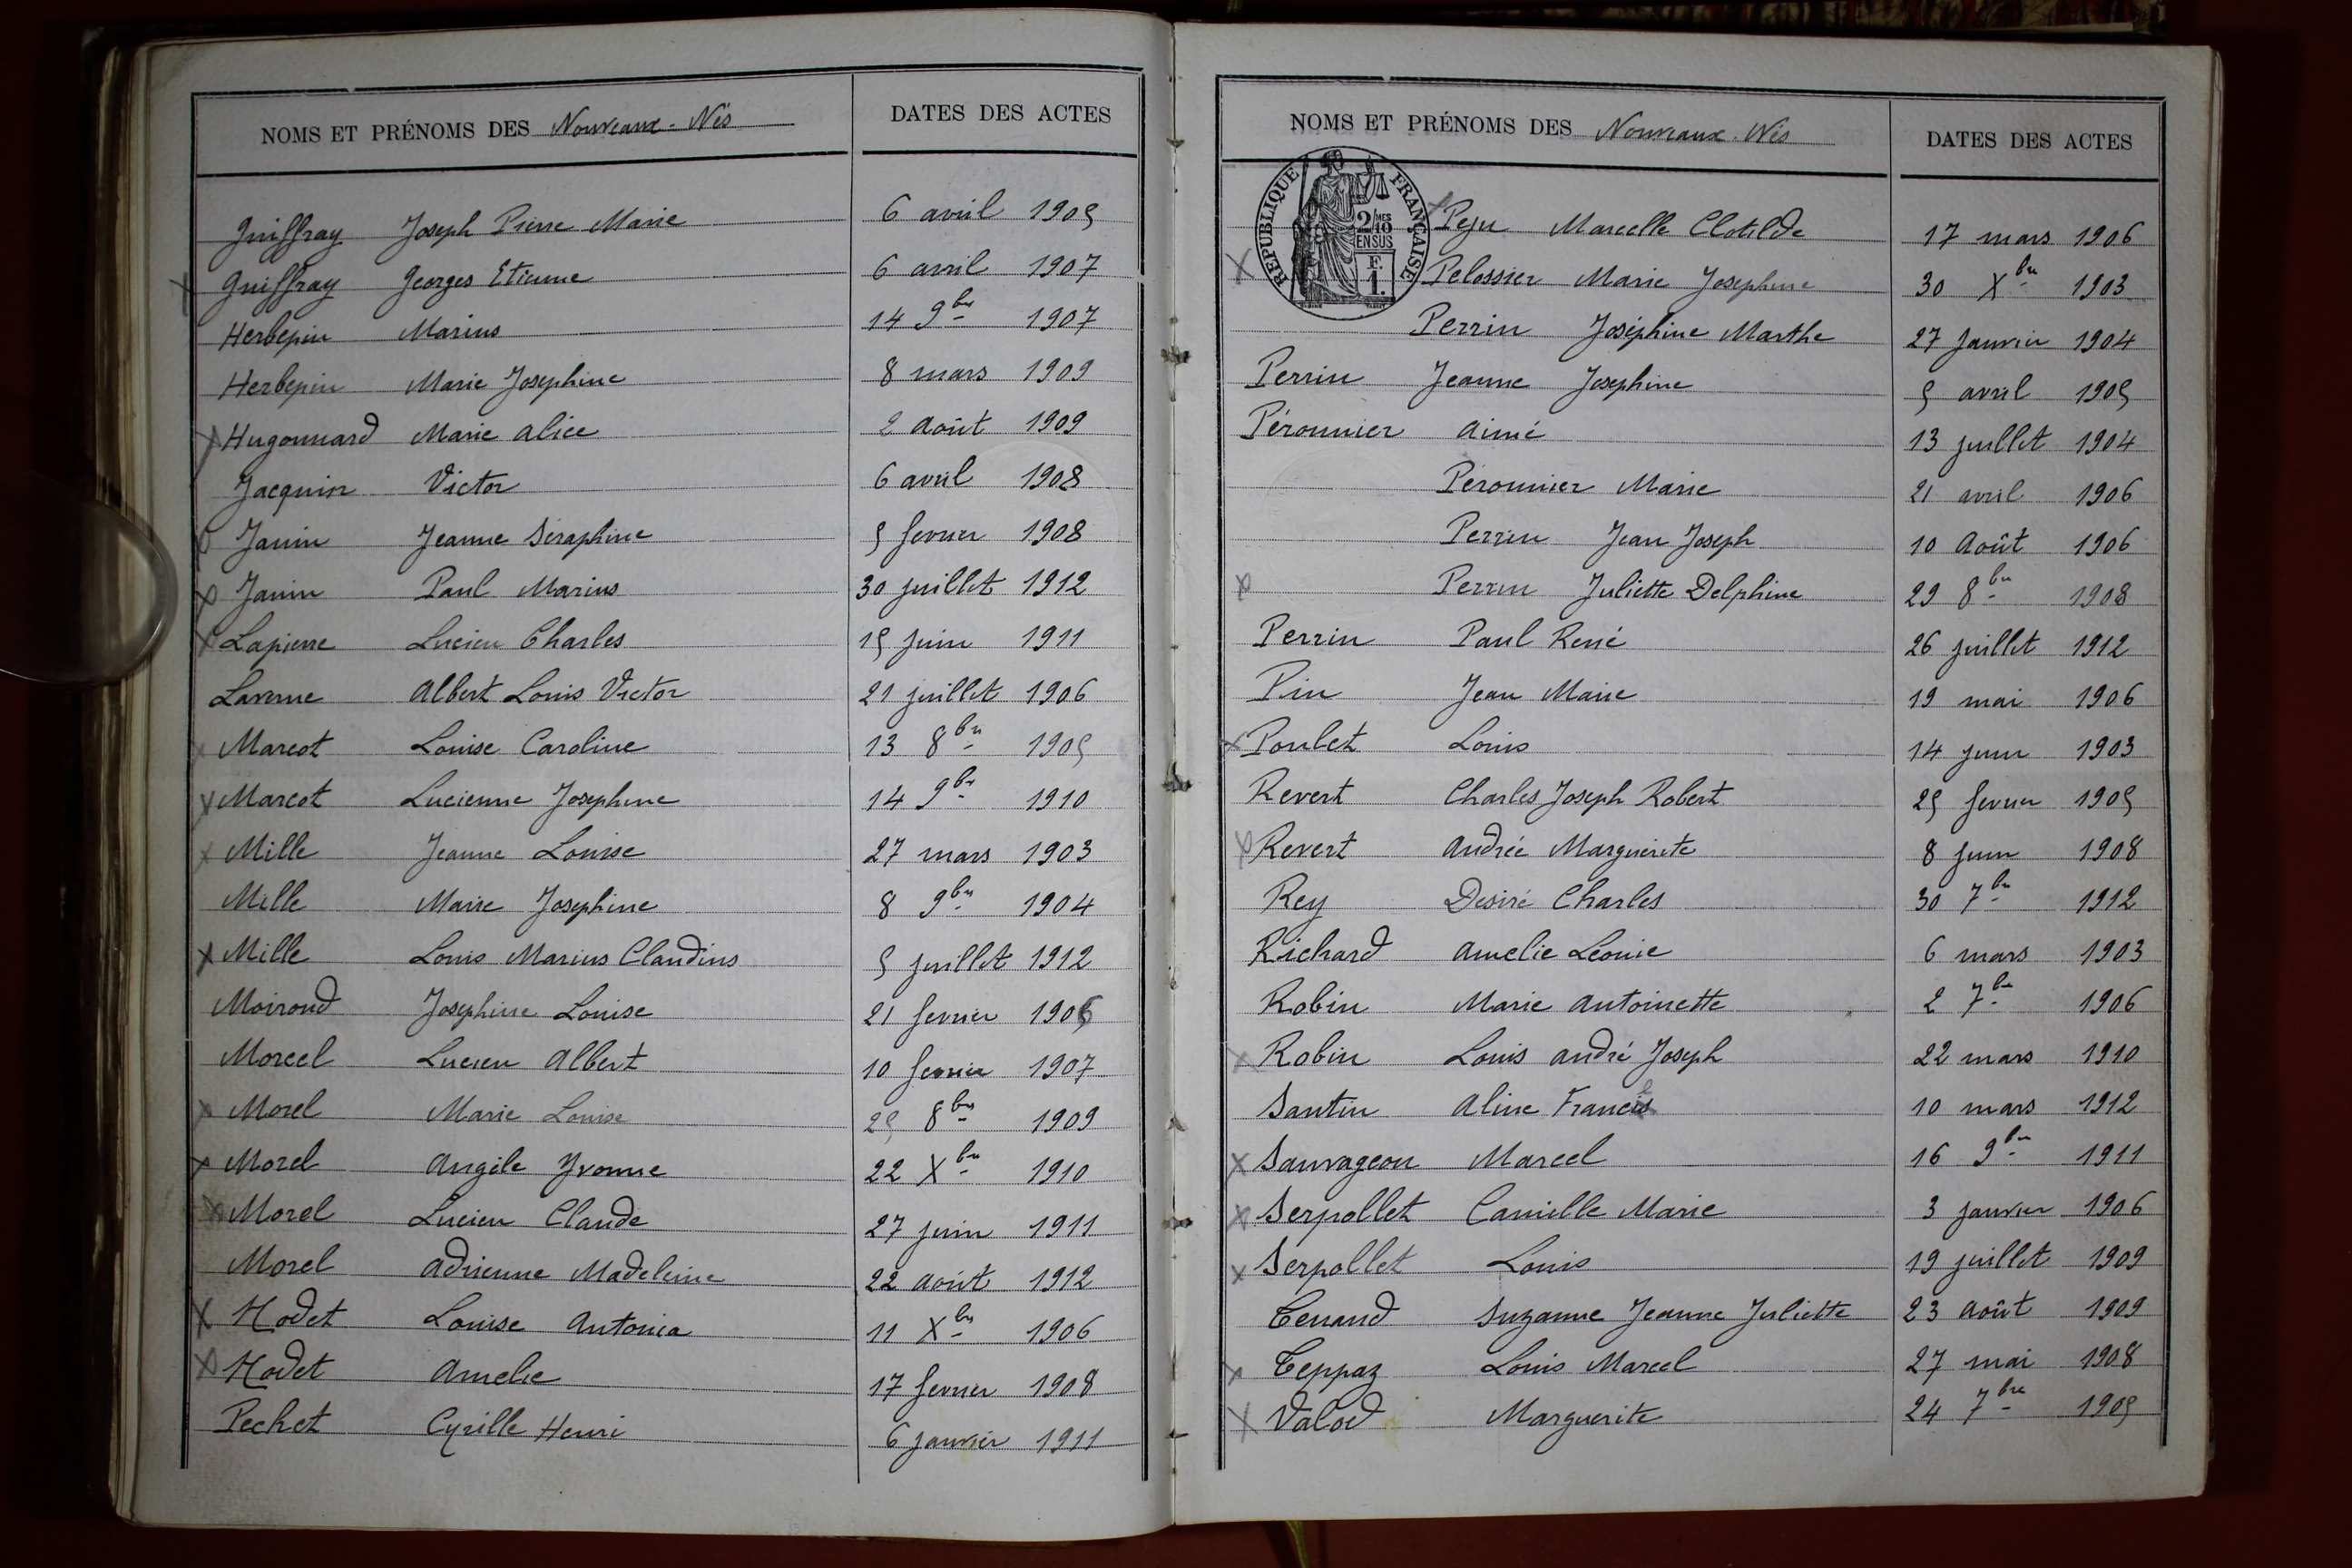 NOMS ET PRÉNOMS DES Nouveaux-Nés DATES DES ACTES
Guiffray Joseph Pierre Marie 6 avril 1905
Guiffray Georges Etienne 6 avril 1907
Herbepin Marius 14 9bre 1907
Herbepin Marie Josephine 8 mars 1909
Hugonnard Marie Alice 2 Août 1909
Jacquin Victor 6 avril 1908
Janin Jeanne Séraphine 5 fevrier 1908
Janin Paul Marius 30 juillet 1912
Lapierre Lucien Charles 15 juin 1911
Laverne Albert Louis Victor 21 juillet 1906
Marcot Louise Caroline 13 8bre 1905
Marcot Lucienne Josephine 14 9bre 1910
Mille Jeanne Louise 27 mars 1903
Mille Marie Josephine 8 9bre 1904
Mille Louis Marius Claudius 5 juillet 1912
Moiroud Josephine Louise 21 fevrier 1906
Morcel Lucien Albert 10 fevrier 1907
Morel Marie Louise 25 8bre 1909
Morel Angèle Yvonne 22 Xbre 1910
Morel Lucien Claude 27 juin 1911
Morel Adrienne Madeleine 22 août 1912
Nodet Louise Antonia 11 Xbre 1906
Nodet Amelie 17 fevrier 1908
Pechet Cyrille Henri 6 janvier 1911
NOMS ET PRÉNOMS DES Nouveaux-Nés DATES DES ACTES
RÉPUBLIQUE FRANÇAISE
2/10 MES
EN SUS
F.
1.
Peju Marcelle Clotilde 17 mars 1906
Pelossier Marie Josephine 30 Xbre 1903
Perrin Joséphine Marthe 27 Janvier 1904
Perrin Jeanne Josephine 5 avril 1905
Péronnier Aimé 13 juillet 1904
Péronnier Marie 21 avril 1906
Perrin Jean Joseph 10 Août 1906
Perrin Juliette Delphine 29 8bre 1908
Perrin Paul René 26 juillet 1912
Pin Jean Marie 19 mai 1906
Poulet Louis 14 juin 1903
Revert Charles Joseph Robert 25 fevrier 1905
Revert Andrée Marguerite 8 juin 1908
Rey Désiré Charles 30 7bre 1912
Richard Amelie Léonie 6 mars 1903
Robin Marie Antoinette 2 7bre 1906
Robin Louis André Joseph 22 mars 1910
Santin Aline 10 mars 1912
Sauvageon Marcel 16 9bre 1911
Serpollet Camille Marie 3 janvier 1906
Serpollet Louis 19 juillet 1909
Tenand Suzanne Jeanne Juliette 23 août 1909
Teppaz Louis Marcel 27 mai 1908
Valod Marguerite 24 7bre 1905